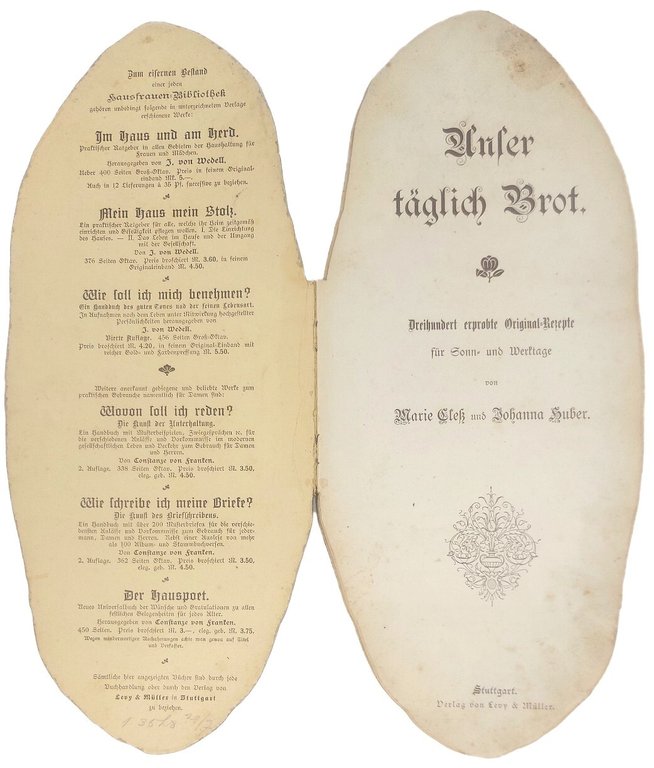 Zum eisernen Bestand
einer jeden
Hausfrauen-Bibliothek
gehören unbedingt folgende in unterzeichnetem Verlage
erschienene Werke:
Im Haus und am Herd.
Praktischer Ratgeber in allen Gebieten der Haushaltung für
Frauen und Mädchen.
Herausgegeben von J. von Wedell.
Ueber 400 Seiten Groß-Oktav. Preis in feinem Original-
einband Mk. 5.—.
Auch in 12 Lieferungen à 35 Pf. successive zu beziehen.
Mein Haus mein Stolz.
Ein praktischer Ratgeber für alle, welche ihr Heim zeitgemäß
einrichten und Geselligkeit pflegen wollen. I. Die Einrichtung
des Hauses. — II. Das Leben im Hause und der Umgang
mit der Gesellschaft.
Von J. von Wedell.
376 Seiten Groß-Oktav. Preis broschiert M. 3.60, in feinem
Originaleinband M. 4.50.
Wie soll ich mich benehmen?
Ein Handbuch des guten Tones und der feinen Lebensart.
In Aufnahmen nach dem Leben unter Mitwirkung hochgestellter
Persönlichkeiten herausgegeben von
J. von Wedell.
Vierte Auflage. 456 Seiten Groß-Oktav.
Preis broschiert M. 4.20, in feinem Original-Einband mit
reicher Gold- und Farbenpressung M. 5.50.
Weitere anerkannt gediegene und beliebte Werke zum
praktischen Gebrauche namentlich für Damen sind:
Wovon soll ich reden?
Die Kunst der Unterhaltung.
Ein Handbuch mit Musterbeispielen, Zwiegesprächen ec. für
die verschiedenen Anlässe und Vorkommnisse im modernen
gesellschaftlichen Leben und Verkehr zum Gebrauch für Damen
und Herren.
Von Constanze von Franken.
2. Auflage. 338 Seiten Oktav. Preis broschiert M. 3.50,
eleg. geb. M. 4.50.
Wie schreibe ich meine Briefe?
Die Kunst des Briefschreibens.
Ein Handbuch mit über 200 Musterbriefen für die verschie-
densten Anlässe und Vorkommnisse zum Gebrauch für jeder-
mann, Damen und Herren. Nebst einer Auslese von mehr
als 100 Album- und Stammbuchversen.
Von Constanze von Franken.
2. Auflage. 362 Seiten Oktav. Preis broschiert M. 3.50,
eleg. geb. M. 4.50.
Der Hauspoet.
Neues Universalbuch der Wünsche und Gratulationen zu allen
festlichen Gelegenheiten für jedes Alter.
Herausgegeben von Constanze von Franken.
450 Seiten. Preis broschiert M. 3.—, eleg. geb. M. 3.75.
Wegen minderwertiger Nachahmungen achte man genau auf Titel
und Verfasser.
Sämtliche hier angezeigten Bücher sind durch jede
Buchhandlung oder durch den Verlag von
Levy & Müller in Stuttgart
zu beziehen.
Unser
täglich Brot.
Dreihundert erprobte Original-Rezepte
für Sonn- und Werktage
von
Marie Cleß und Johanna Huber.
Stuttgart.
Verlag von Levy & Müller.